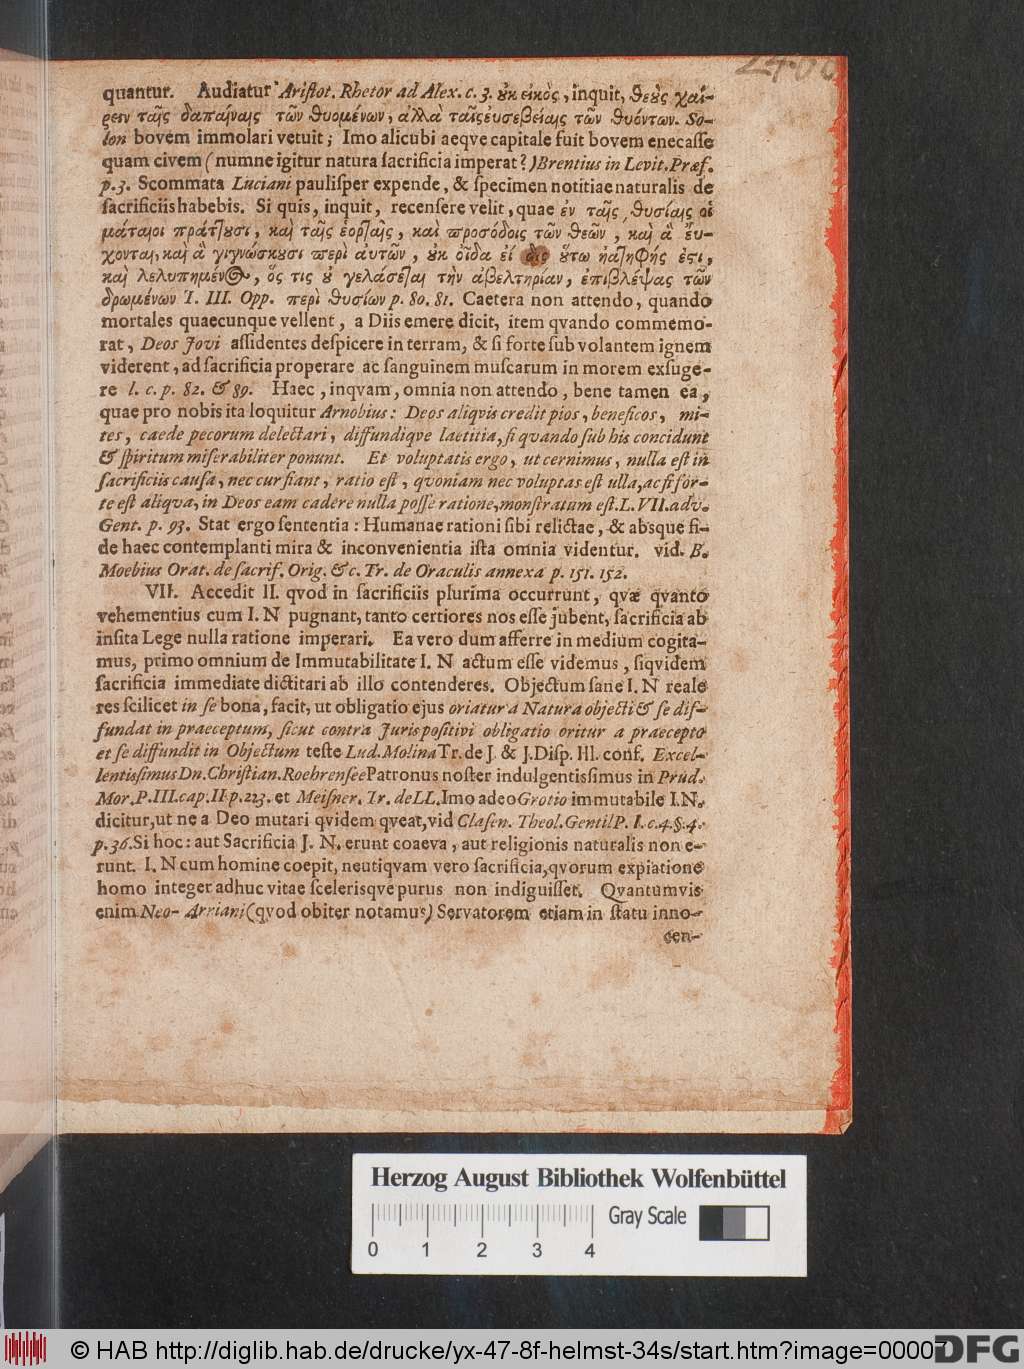 quantur. Audiatur Aristot. Rhetor ad Alex. c. 3. ȣκ εικὸς, inquit, θεȣ̀ς χαί-
ρειν ταῖς δαπαίναις τῶν θυομένων, ἀλλὰ ταῖς ευσεβείαις τῶν θυόντων. So-
lon bovem immolari vetuit; Imo alicubi aeqve capitale fuit bovem enecasse
quam civem (numne igitur natura sacrificia imperat?) Brentius in Levit. Præf.
p. 3. Scommata Luciani paulisper expende, & specimen notitiae naturalis de
sacrificiis habebis. Si quis, inquit, recensere velit, quae ἐν ταῖς θυσίαις οἱ
μάταιοι πράτȣσι, καὶ ταῖς ἑορταῖς, καὶ προσόδοις τῶν θεῶν, καὶ ἃ ἔυ-
χονται, καὶ ἃ γιγνώσκȣσι περὶ ἀυτῶν, ȣκ οἶδα εἰ ȣτω κατηφής ἐστι,
καὶ λελυπημένος, ὅς τις ȣ γελάσεται τὴν ἀβελτηρίαν, ἐπιβλέψας τῶν
δρωμένων T. III. Opp. περὶ θυσίων p. 80. 81. Caetera non attendo, quando
mortales quaecunque vellent, a Diis emere dicit, item qvando commemo-
rat, Deos Jovi assidentes despicere in terram, & si forte sub volantem ignem
viderent, ad sacrificia properare ac sanguinem muscarum in morem exsuge-
re l. c. p. 82. & 89. Haec, inqvam, omnia non attendo, bene tamen ea,
quae pro nobis ita loquitur Arnobius: Deos aliqvis credit pios, beneficos, mi-
tes, caede pecorum delectari, diffundiqve laetitia, si quando sub his concidunt
& spiritum miserabiliter ponunt. Et voluptatis ergo, ut cernimus, nulla est in
sacrificiis causa, nec cur fiant, ratio est, qvoniam nec voluptas est ulla, ac si for-
te est aliqva, in Deos eam cadere nulla posse ratione, monstratum est. L. VII. adv.
Gent. p. 93. Stat ergo sententia: Humanae rationi sibi relictae, & absque fi-
de haec contemplanti mira & inconvenientia ista omnia videntur. vid. B.
Moebius Orat. de sacrif. Orig. & c. Tr. de Oraculis annexa p. 151. 152.
VII. Accedit II. qvod in sacrificiis plurima occurrunt, qvæ qvanto
vehementius cum I. N pugnant, tanto certiores nos esse jubent, sacrificia ab
insita Lege nulla ratione imperari. Ea vero dum afferre in medium cogita-
mus, primo omnium de Immutabilitate I. N actum esse videmus, siqvidem
sacrificia immediate dictitari ab illo contenderes. Objectum sane I. N reale
res scilicet in se bona, facit, ut obligatio ejus oriatur a Natura objecti & se dif-
fundat in praeceptum, sicut contra Juris positivi obligatio oritur a praecepto
et se diffundit in Objectum teste Lud. Molina Tr. de J. & J. Disp. III. conf. Excel-
lentissimus Dn. Christian. Roehrensee Patronus noster indulgentissimus in Prud.
Mor. P. III. cap. II p. 223. et Meisner. Tr. de LL. Imo adeo Grotio immutabile I. N.
dicitur, ut ne a Deo mutari qvidem qveat, vid Clasen. Theol. Gentil P. I. c. 4. §. 4.
p. 36. Si hoc: aut Sacrificia J. N. erunt coaeva, aut religionis naturalis non e-
runt. I. N cum homine coepit, neutiqvam vero sacrificia, qvorum expiatione
homo integer adhuc vitae scelerisqve purus non indiguisset. Qvantumvis
enim Neo- Arriani (qvod obiter notamus) Servatorem etiam in statu inno-
cen-
Herzog August Bibliothek Wolfenbüttel
Gray Scale
0 1 2 3 4
© HAB http://diglib.hab.de/drucke/yx-47-8f-helmst-34s/start.htm?image=00007
DFG